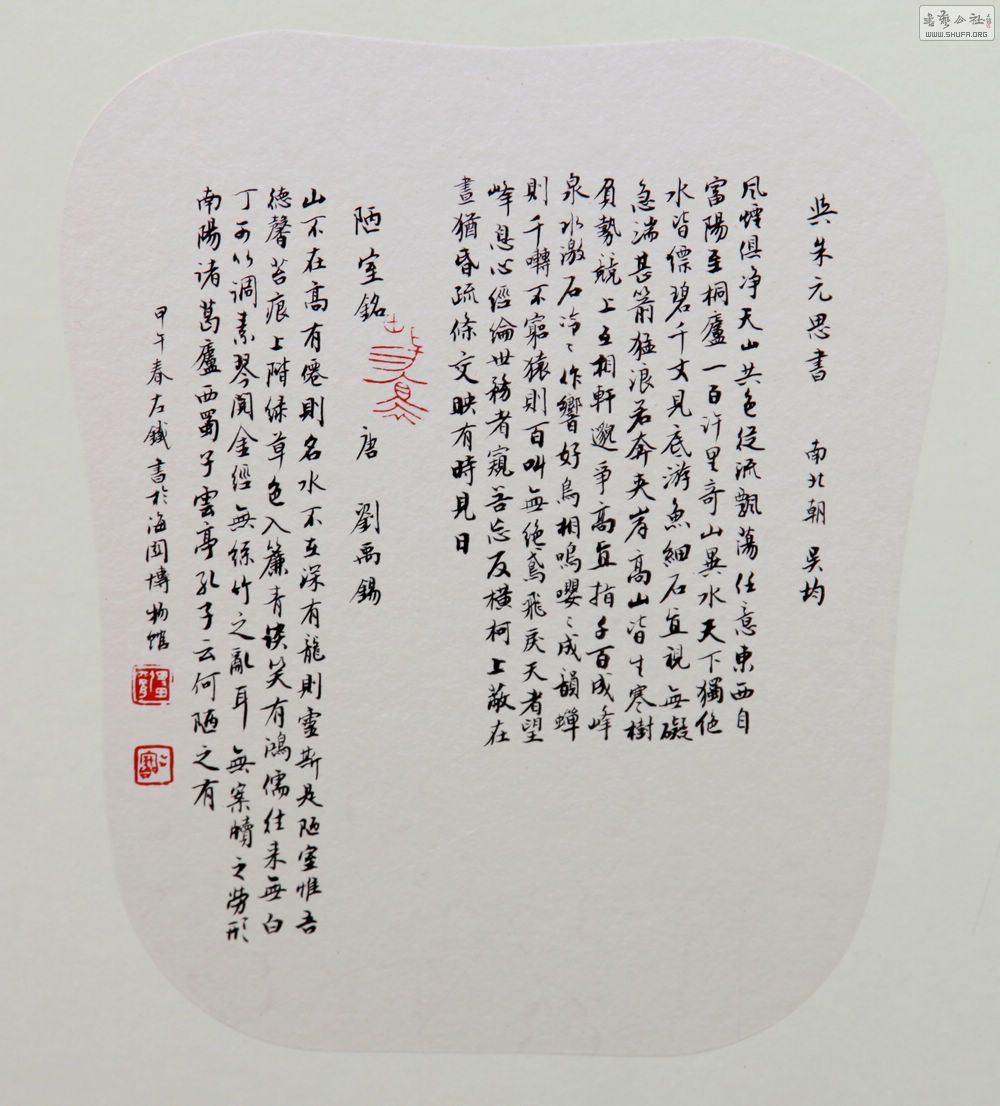 與朱元思書 南北朝 吳均
風煙俱净天山共色從流飄蕩任意東西自
富陽至桐廬一百許里奇山異水天下獨絕
水皆縹碧千丈見底游魚細石直視無礙
急湍甚箭猛浪若奔夾岸高山皆生寒樹
負勢競上互相軒邈爭高直指千百成峰
泉水激石泠〻作響好鳥相鳴嚶〻成韻蟬
則千囀不窮猿則百叫無絕鳶飛戾天者望
峰息心經綸世務者窺谷忘反橫柯上蔽在
晝猶昏疏條交映有時見日
陋室銘 唐 劉禹錫
山不在高有僊則名水不在深有龍則靈斯是陋室惟吾
德馨苔痕上階綠草色入簾青談笑有鴻儒往來無白
丁可以調素琴閱金經無絲竹之亂耳無案牘之勞形
南陽諸葛廬西蜀子雲亭孔子云何陋之有
甲午春左鐵書於海博物館
書藝公社
WWW.SHUFA.ORG